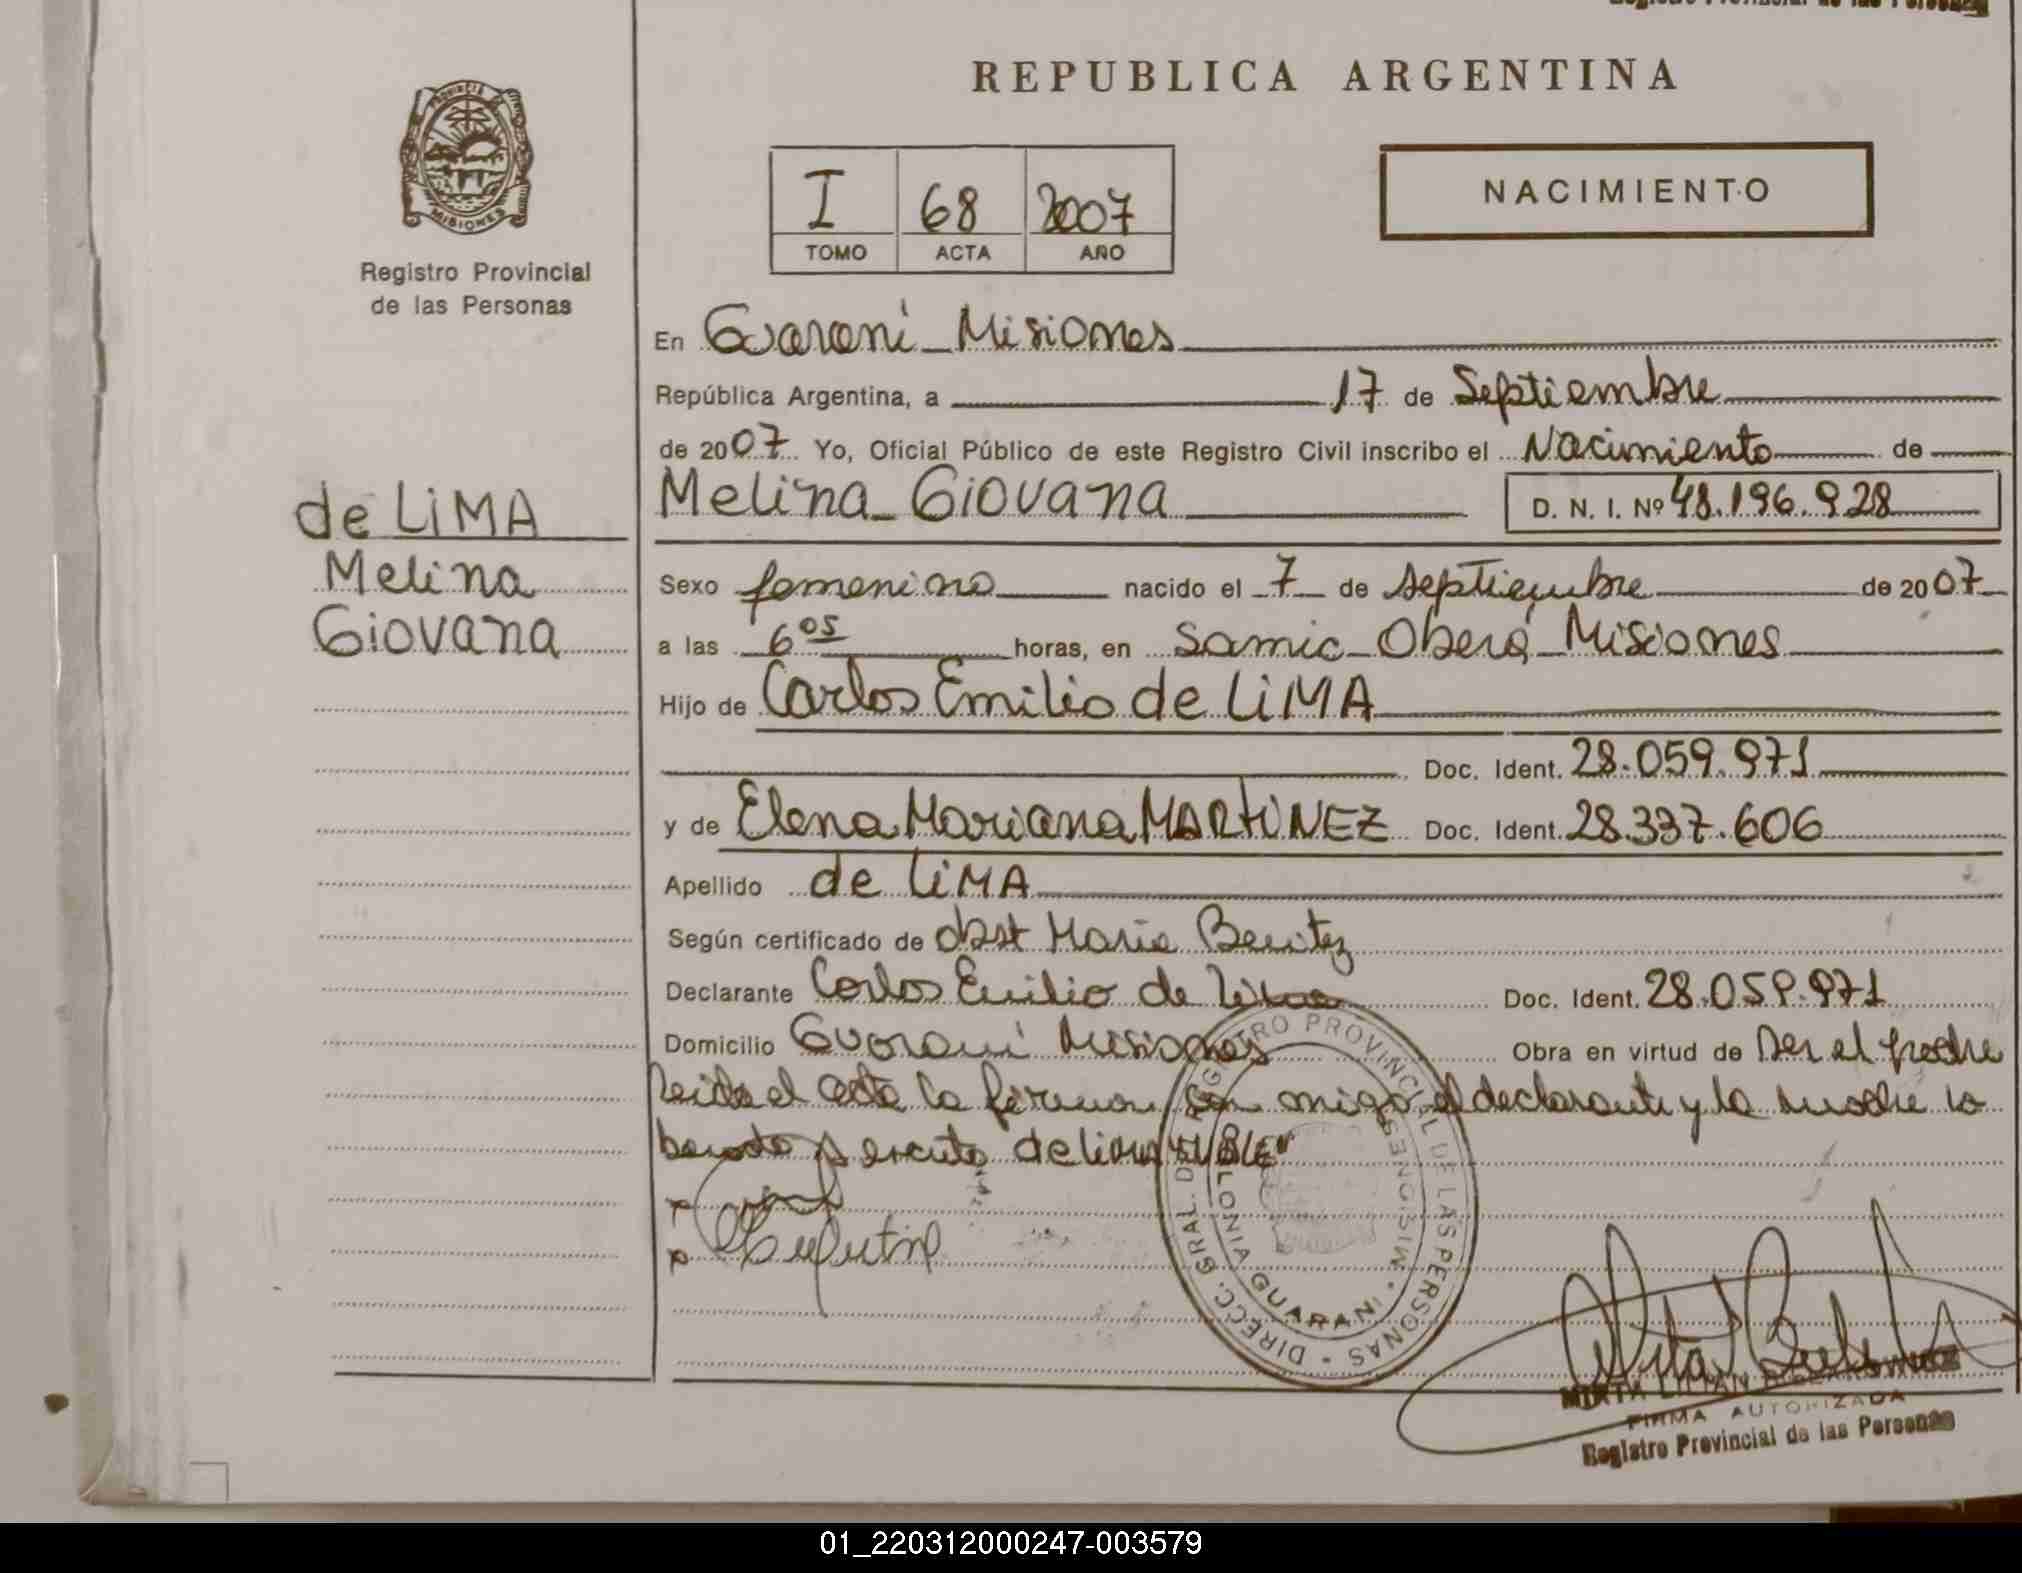 REPUBLICA ARGENTINA
PROVINCIA DE
MISIONES
Registro Provincial
de las Personas
I 68 2007
TOMO ACTA AÑO
NACIMIENTO
En Guaraní - Misiones
República Argentina, a 17 de Septiembre
de 2007 Yo, Oficial Público de este Registro Civil inscribo el Nacimiento de
de LiMA
Melina
Giovana
Melina - Giovana
D. N. I. Nº 48.196.928
Sexo femenino nacido el 7 de septiembre de 2007
a las 6 05 horas, en Samic - Oberá - Misiones
Hijo de Carlos Emilio de LiMA
Doc. Ident. 28.059.971
y de Elena Mariana MARTiNEZ Doc. Ident. 28.337.606
Apellido de LiMA
Según certificado de Obst Maria Benitez
Declarante Carlos Emilio de Lima Doc. Ident. 28.059.971
Domicilio Guaraní Misiones Obra en virtud de ser el padre
leida el acta la firman con migo el declarante y la madre
de lima VALE
DIRECC. GRAL. DE REGISTRO PROVINCIAL DE LAS PERSONAS
COLONIA GUARANI - MISIONES
MIRTA LILIAN
FIRMA AUTORIZADA
Registro Provincial de las Personas
01_220312000247-003579